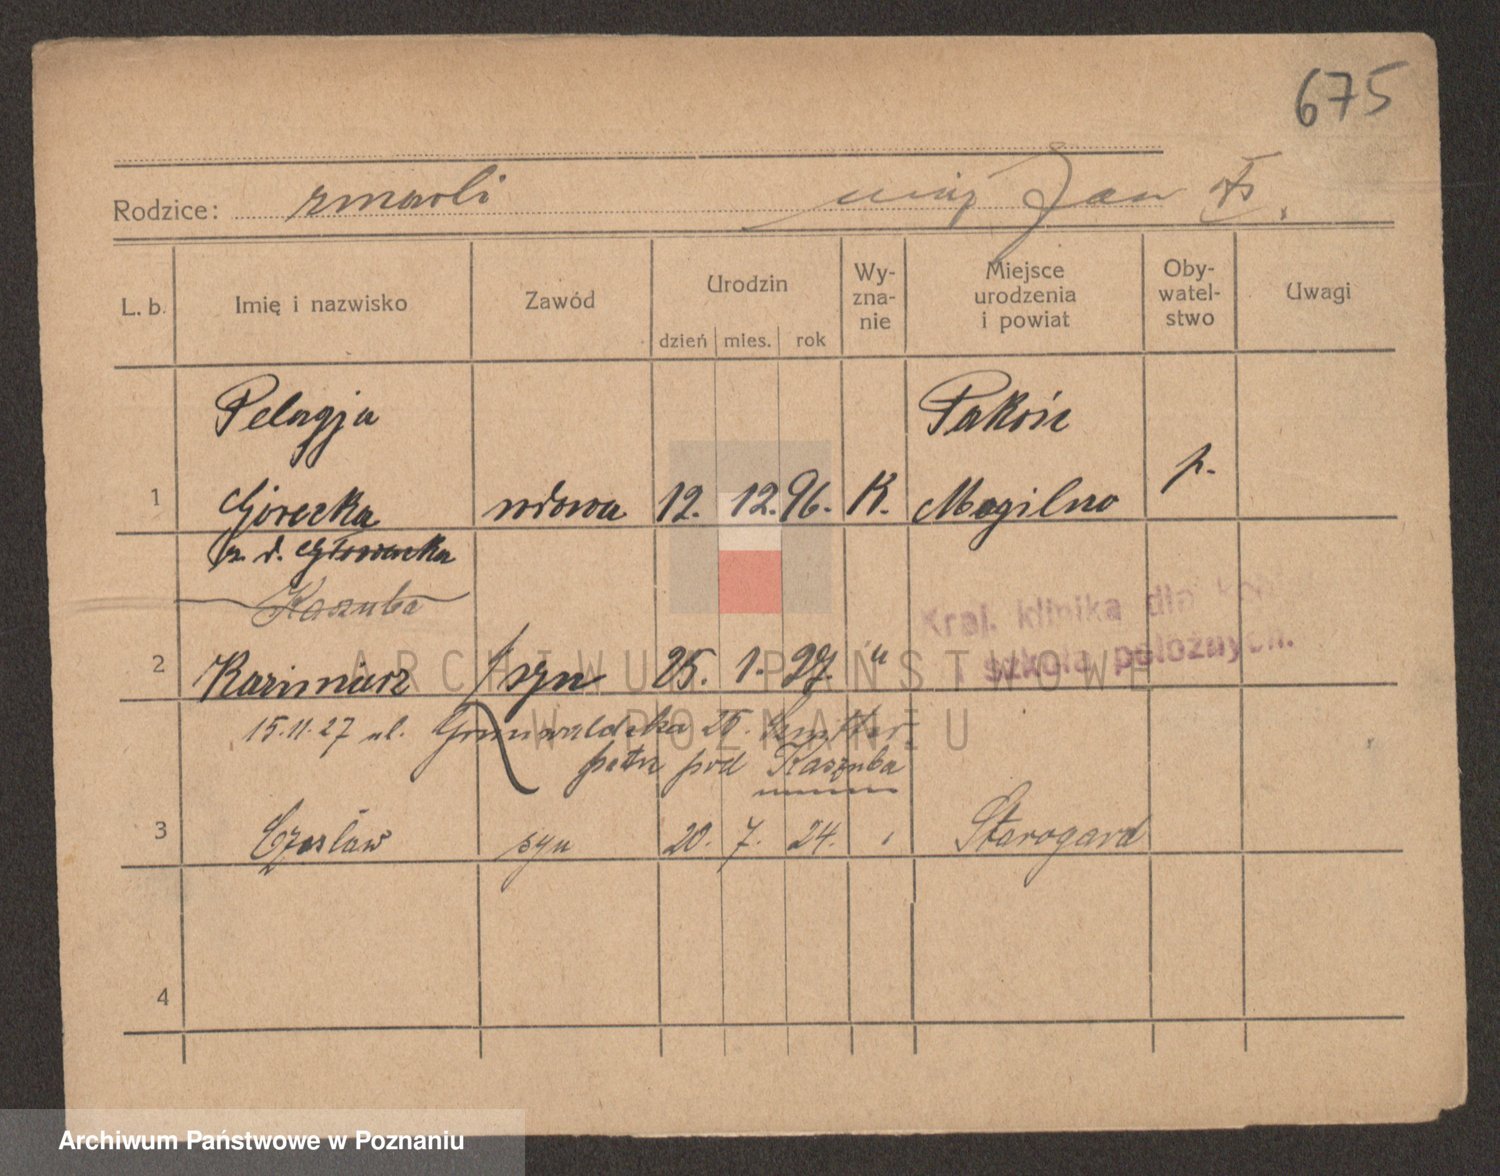 675
Rodzice: zmarli mąż Jan
L. b. Imię i nazwisko Zawód Urodzin Wy-zna-nie Miejsce urodzenia i powiat Oby-watel-stwo Uwagi
dzień mies. rok
Pelagja Pakość
1 Górecka wdowa 12. 12. 96. K. Mogilno p.
z d. Głowacka
Kaszuba
Kral. klinika dla
szkoła położnych.
2 Kazimierz syn 25. 1. 27. "
15.11.27 ul. Grunwaldzka 25.
patrz pod Kaszuba
3 Czesław syn 20. 7. 24. Starogard
4
ARCHIWUM PAŃSTWOWE
W POZNANIU
Archiwum Państwowe w Poznaniu